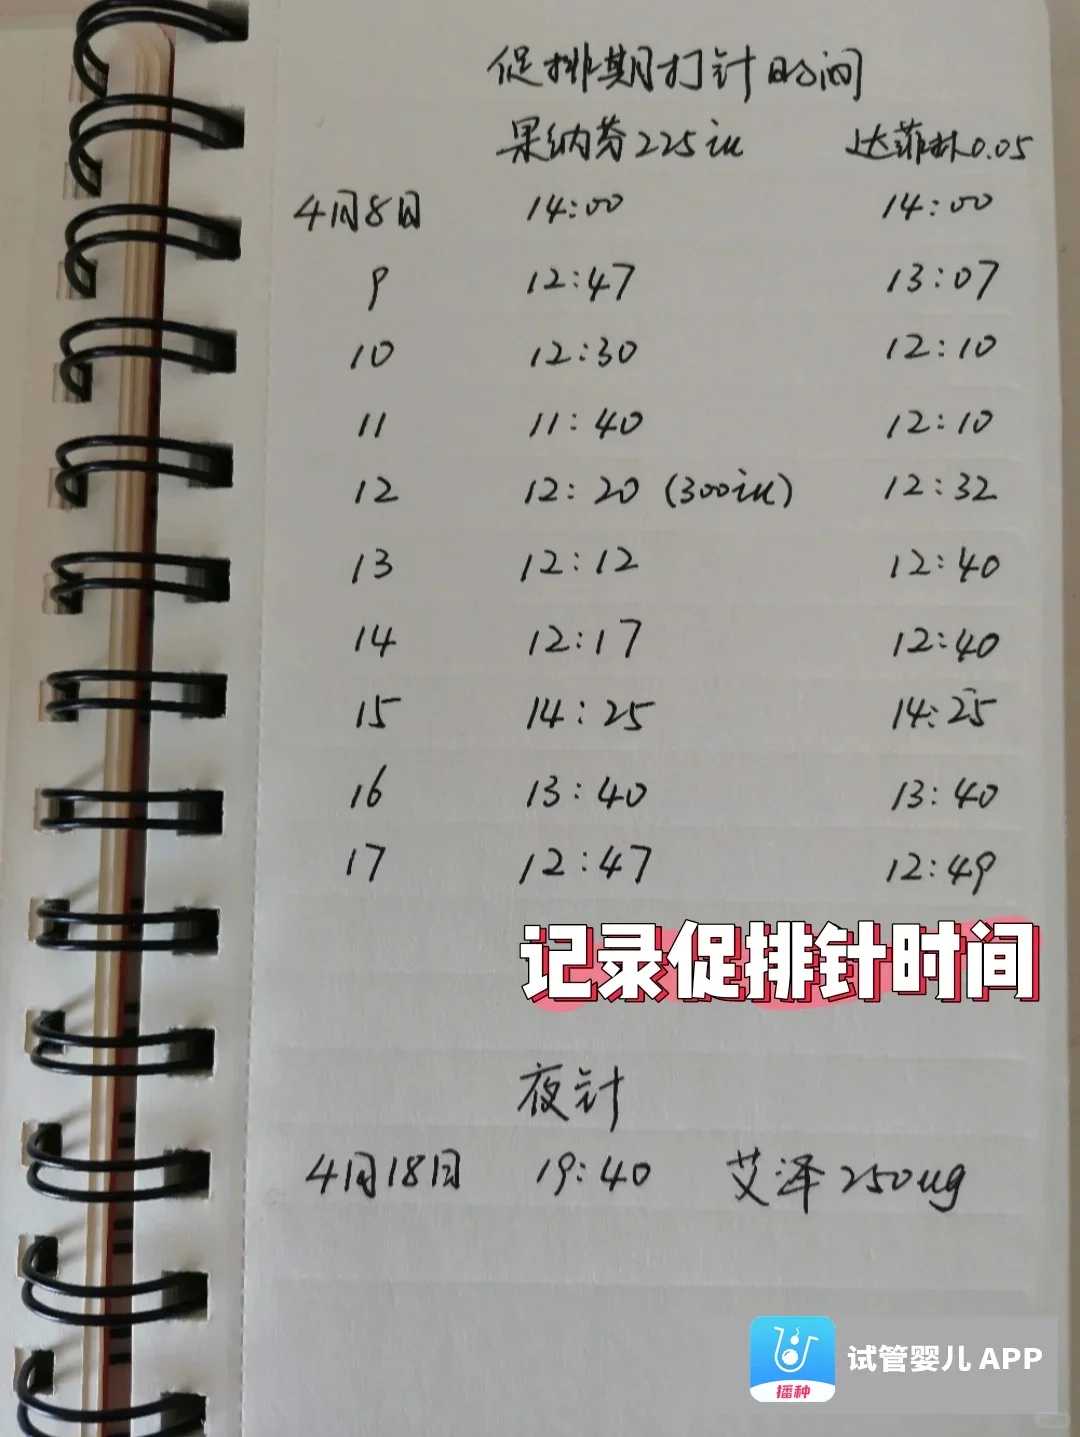 促排期打针时间
果纳芬225iu 达菲林0.05
4月8日 14:00 14:00
9 12:47 13:07
10 12:30 12:10
11 11:40 12:10
12 12:20 (300iu) 12:32
13 12:12 12:40
14 12:17 12:40
15 14:25 14:25
16 13:40 13:40
17 12:47 12:49
记录促排针时间
夜针
4月18日 19:40 艾泽250ug
试管婴儿 APP
播种